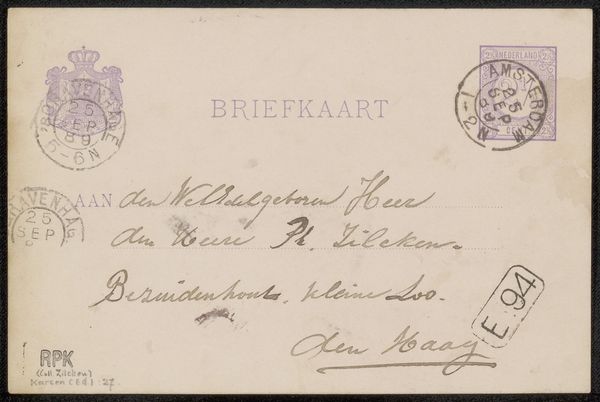 NEDERLAND
2½ 2½
AMSTERDAM
25
SEP
89
1-2N
'SGRAVENHAGE
25
SEP
89
5-6N
BRIEFKAART
GRAVENHAG
25
SEP
AAN den WelEdelgeboren Heer
den Heere Ph. Zilcken.
Bezuidenhout, kleine Loo.
den Haag
E.94
RPK
(coll. Zilcken)
Karsen (Ed.): 27